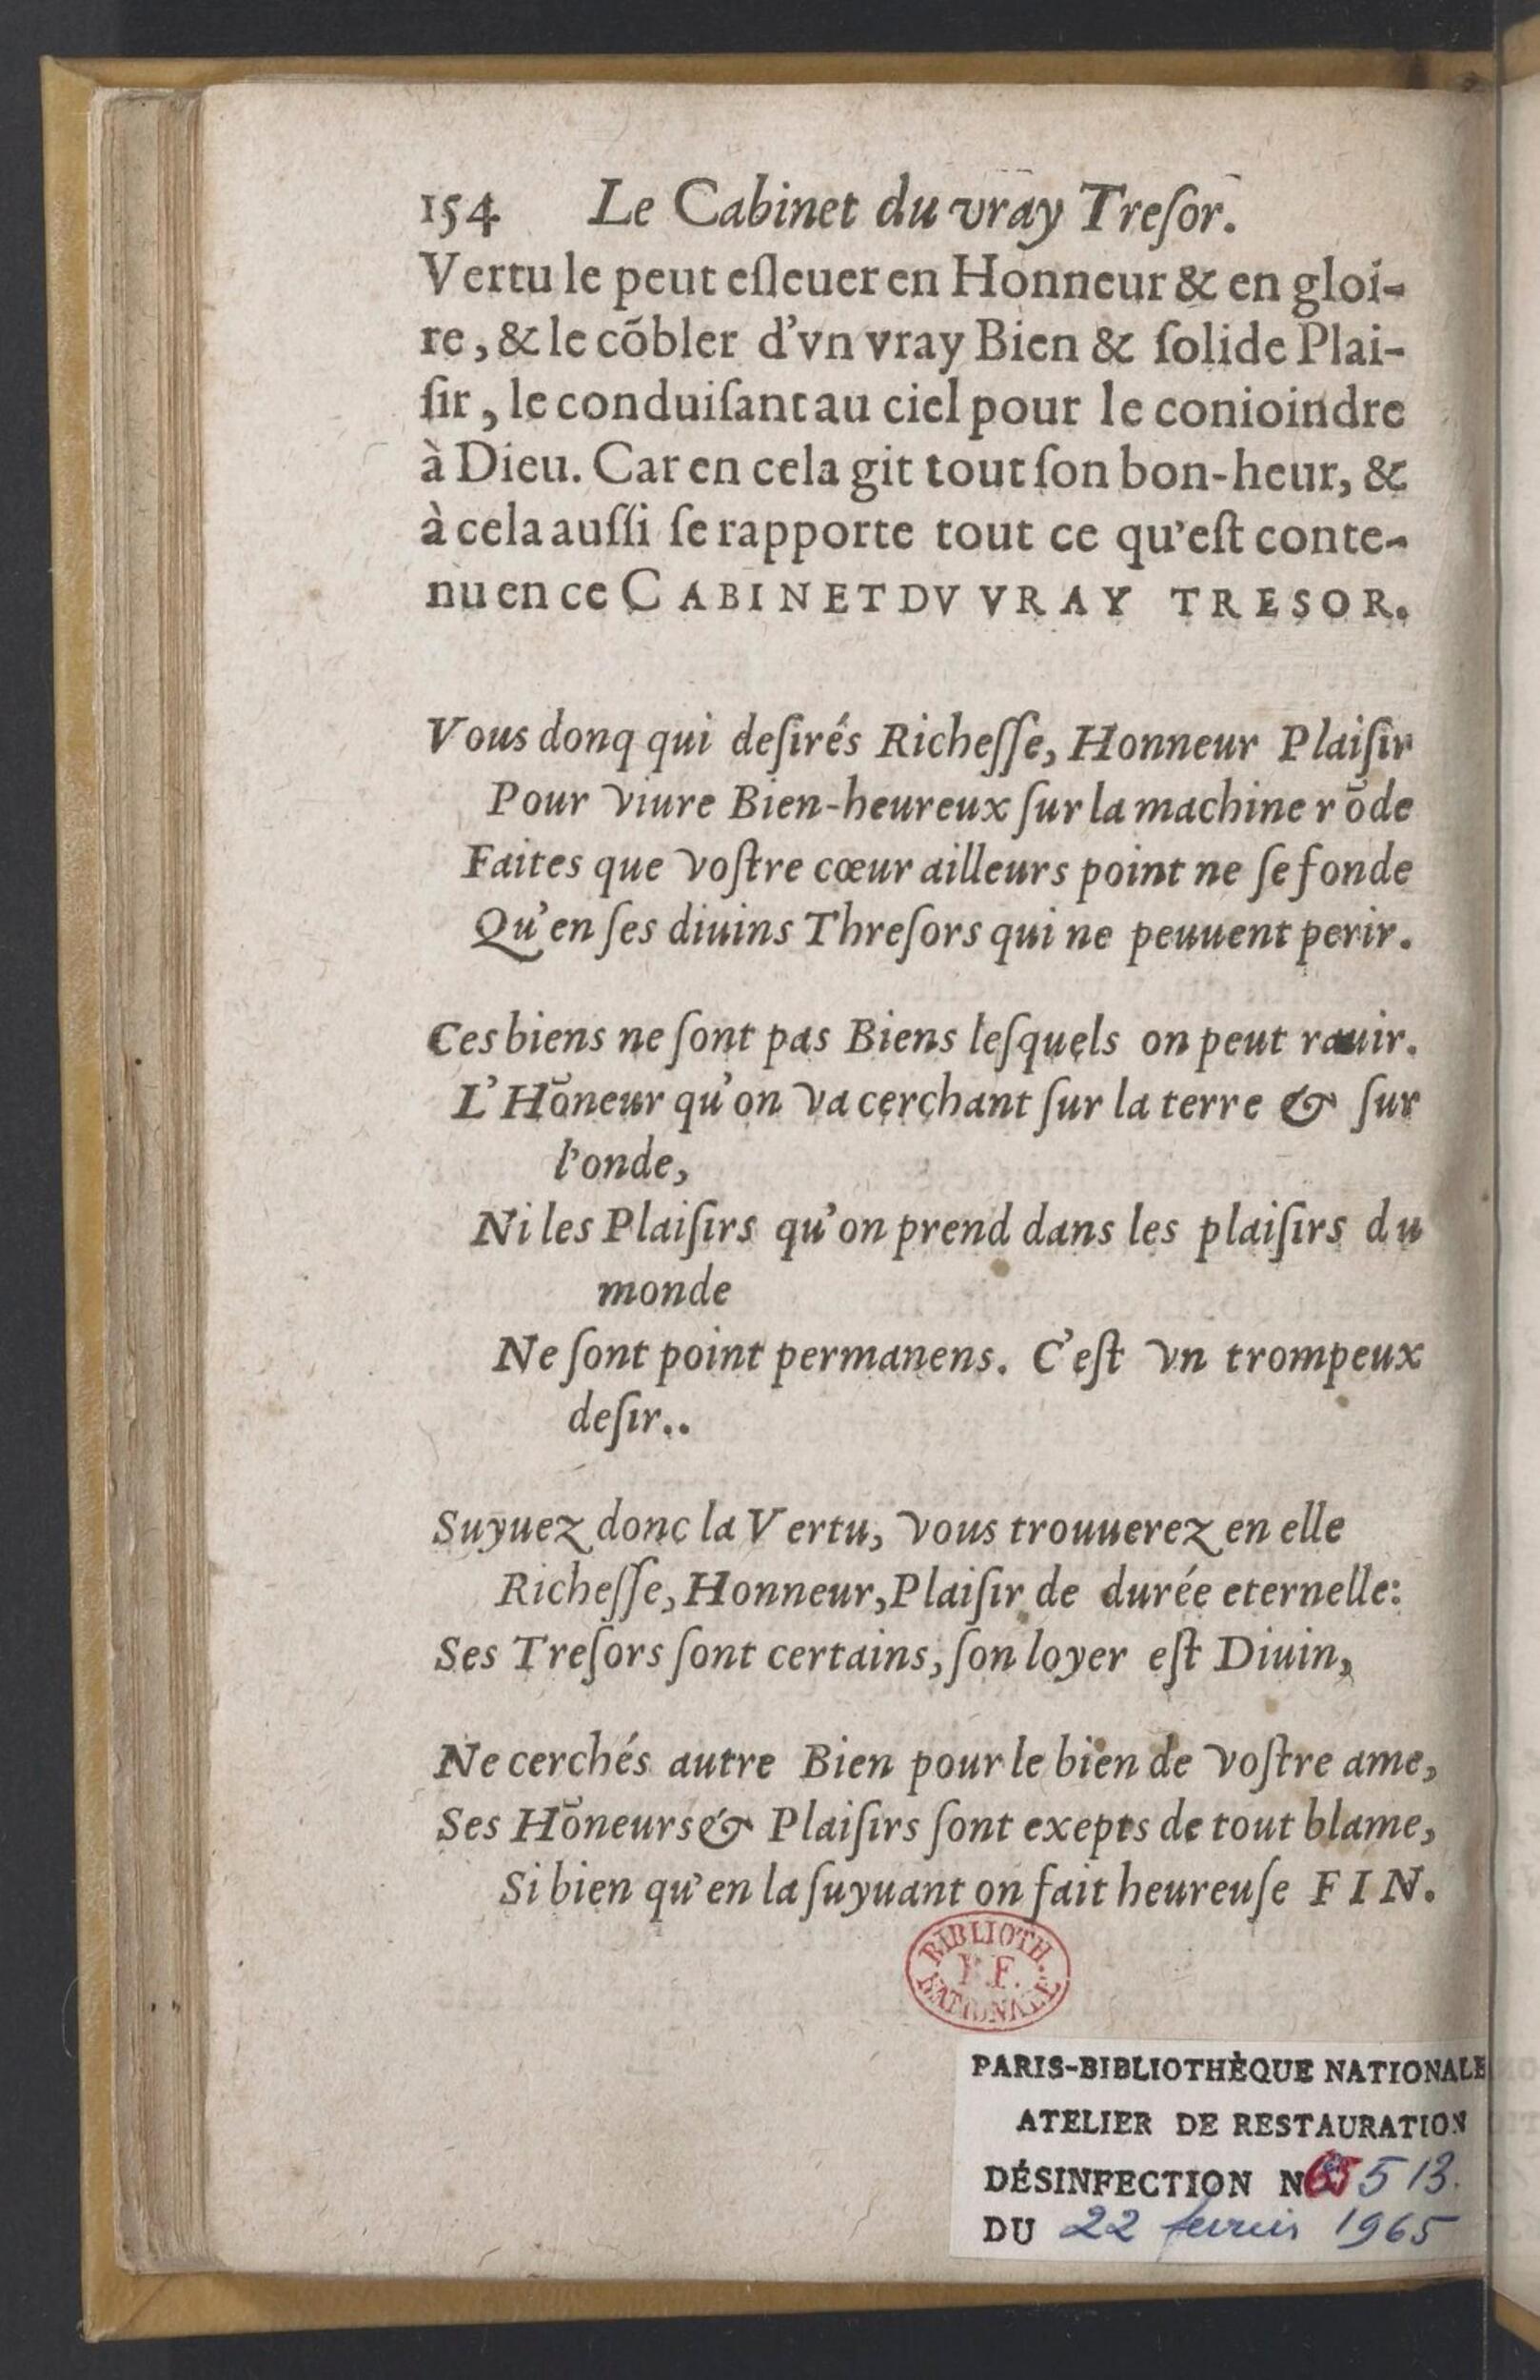 154 Le Cabinet du vray Treſor.
Vertu le peut eſleuer en Honneur & en gloi-
re, & le cõbler d'vn vray Bien & ſolide Plai-
ſir, le conduiſant au ciel pour le conioindre
à Dieu. Car en cela git tout ſon bon-heur, &
à cela auſſi ſe rapporte tout ce qu'eſt conte-
nu en ce CABINET DV VRAY TRESOR.
Vous donq qui deſirés Richeſſe, Honneur Plaiſir
Pour viure Bien-heureux ſur la machine rõde
Faites que voſtre cœur ailleurs point ne ſe fonde
Qu'en ſes diuins Threſors qui ne peuuent perir.
Ces biens ne ſont pas Biens leſquels on peut rauir.
L'Hõneur qu'on va cerchant ſur la terre & ſur
l'onde,
Ni les Plaiſirs qu'on prend dans les plaiſirs du
monde
Ne ſont point permanens. C'eſt vn trompeux
deſir..
Suyuez donc la Vertu, vous trouuerez en elle
Richeſſe, Honneur, Plaiſir de durée eternelle:
Ses Treſors ſont certains, ſon loyer eſt Diuin,
Ne cerchés autre Bien pour le bien de voſtre ame,
Ses Hõneurs & Plaiſirs ſont exepts de tout blame,
Si bien qu'en la ſuyuant on fait heureuſe FIN.
BIBLIOTH.
R.F.
NATIONALE
PARIS-BIBLIOTHÈQUE NATIONALE
ATELIER DE RESTAURATION
DÉSINFECTION N 65 513.
DU 22 fevrier 1965